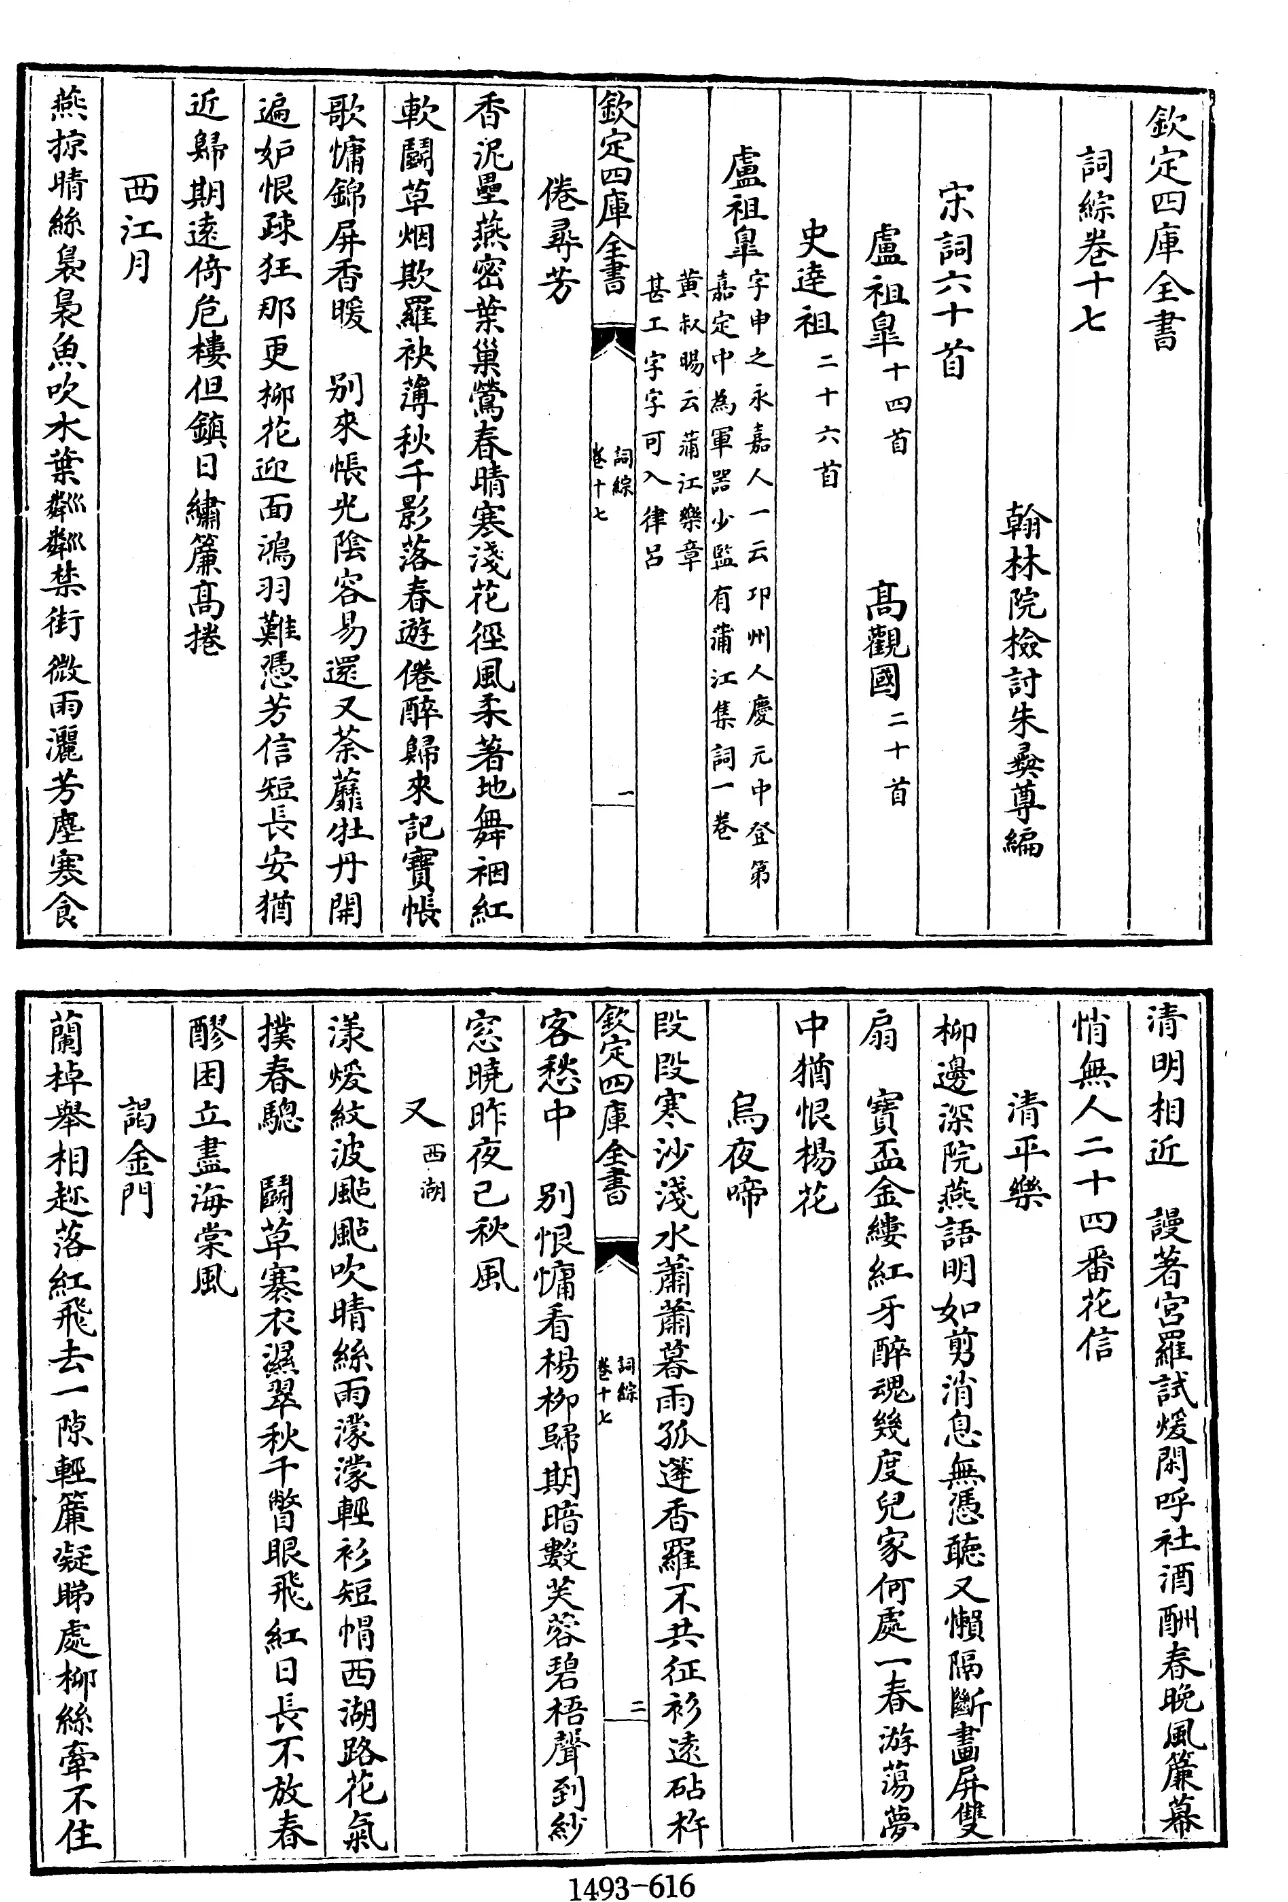 欽定四庫全書
詞綜卷十七
翰林院檢討朱彞尊編
宋詞六十首
盧祖臯十四首 高觀國二十首
史達祖二十六首
盧祖臯字申之永嘉人一云邛州人慶元中登第
嘉定中為軍器少監有蒲江集詞一卷
黃叔暘云蒲江樂章
甚工字字可入律呂
欽定四庫全書
詞綜
卷十七
一
倦尋芳
香泥壘燕密葉巢鶯春晴寒淺花徑風柔著地舞裀紅
軟鬭草烟欺羅袂薄秋千影落春遊倦醉歸來記寶帳
歌慵錦屏香暖 別來悵光陰容易還又荼蘼牡丹開
遍妒恨疎狂那更柳花迎面鴻羽難憑芳信短長安猶
近歸期遠倚危樓但鎮日繡簾高捲
西江月
燕掠晴絲裊裊魚吹水葉粼粼禁街微雨灑芳塵寒食
清明相近 謾著宮羅試煖閑呼社酒酬春晚風簾幕
悄無人二十四番花信
清平樂
柳邊深院燕語明如剪消息無憑聽又懶隔斷畫屏雙
扇 寶盃金縷紅牙醉魂幾度兒家何處一春游蕩夢
中猶恨楊花
烏夜啼
段段寒沙淺水蕭蕭暮雨孤篷香羅不共征衫遠砧杵
欽定四庫全書
詞綜
卷十七
二
客愁中 別恨慵看楊柳歸期暗數芙蓉碧梧聲到紗
窓曉昨夜已秋風
又西湖
漾煖紋波颭颭吹晴絲雨濛濛輕衫短帽西湖路花氣
撲春驄 鬭草褰衣濕翠秋千瞥眼飛紅日長不放春
醪困立盡海棠風
謁金門
蘭棹舉相趂落紅飛去一隙輕簾凝睇處柳絲牽不住
1493-616